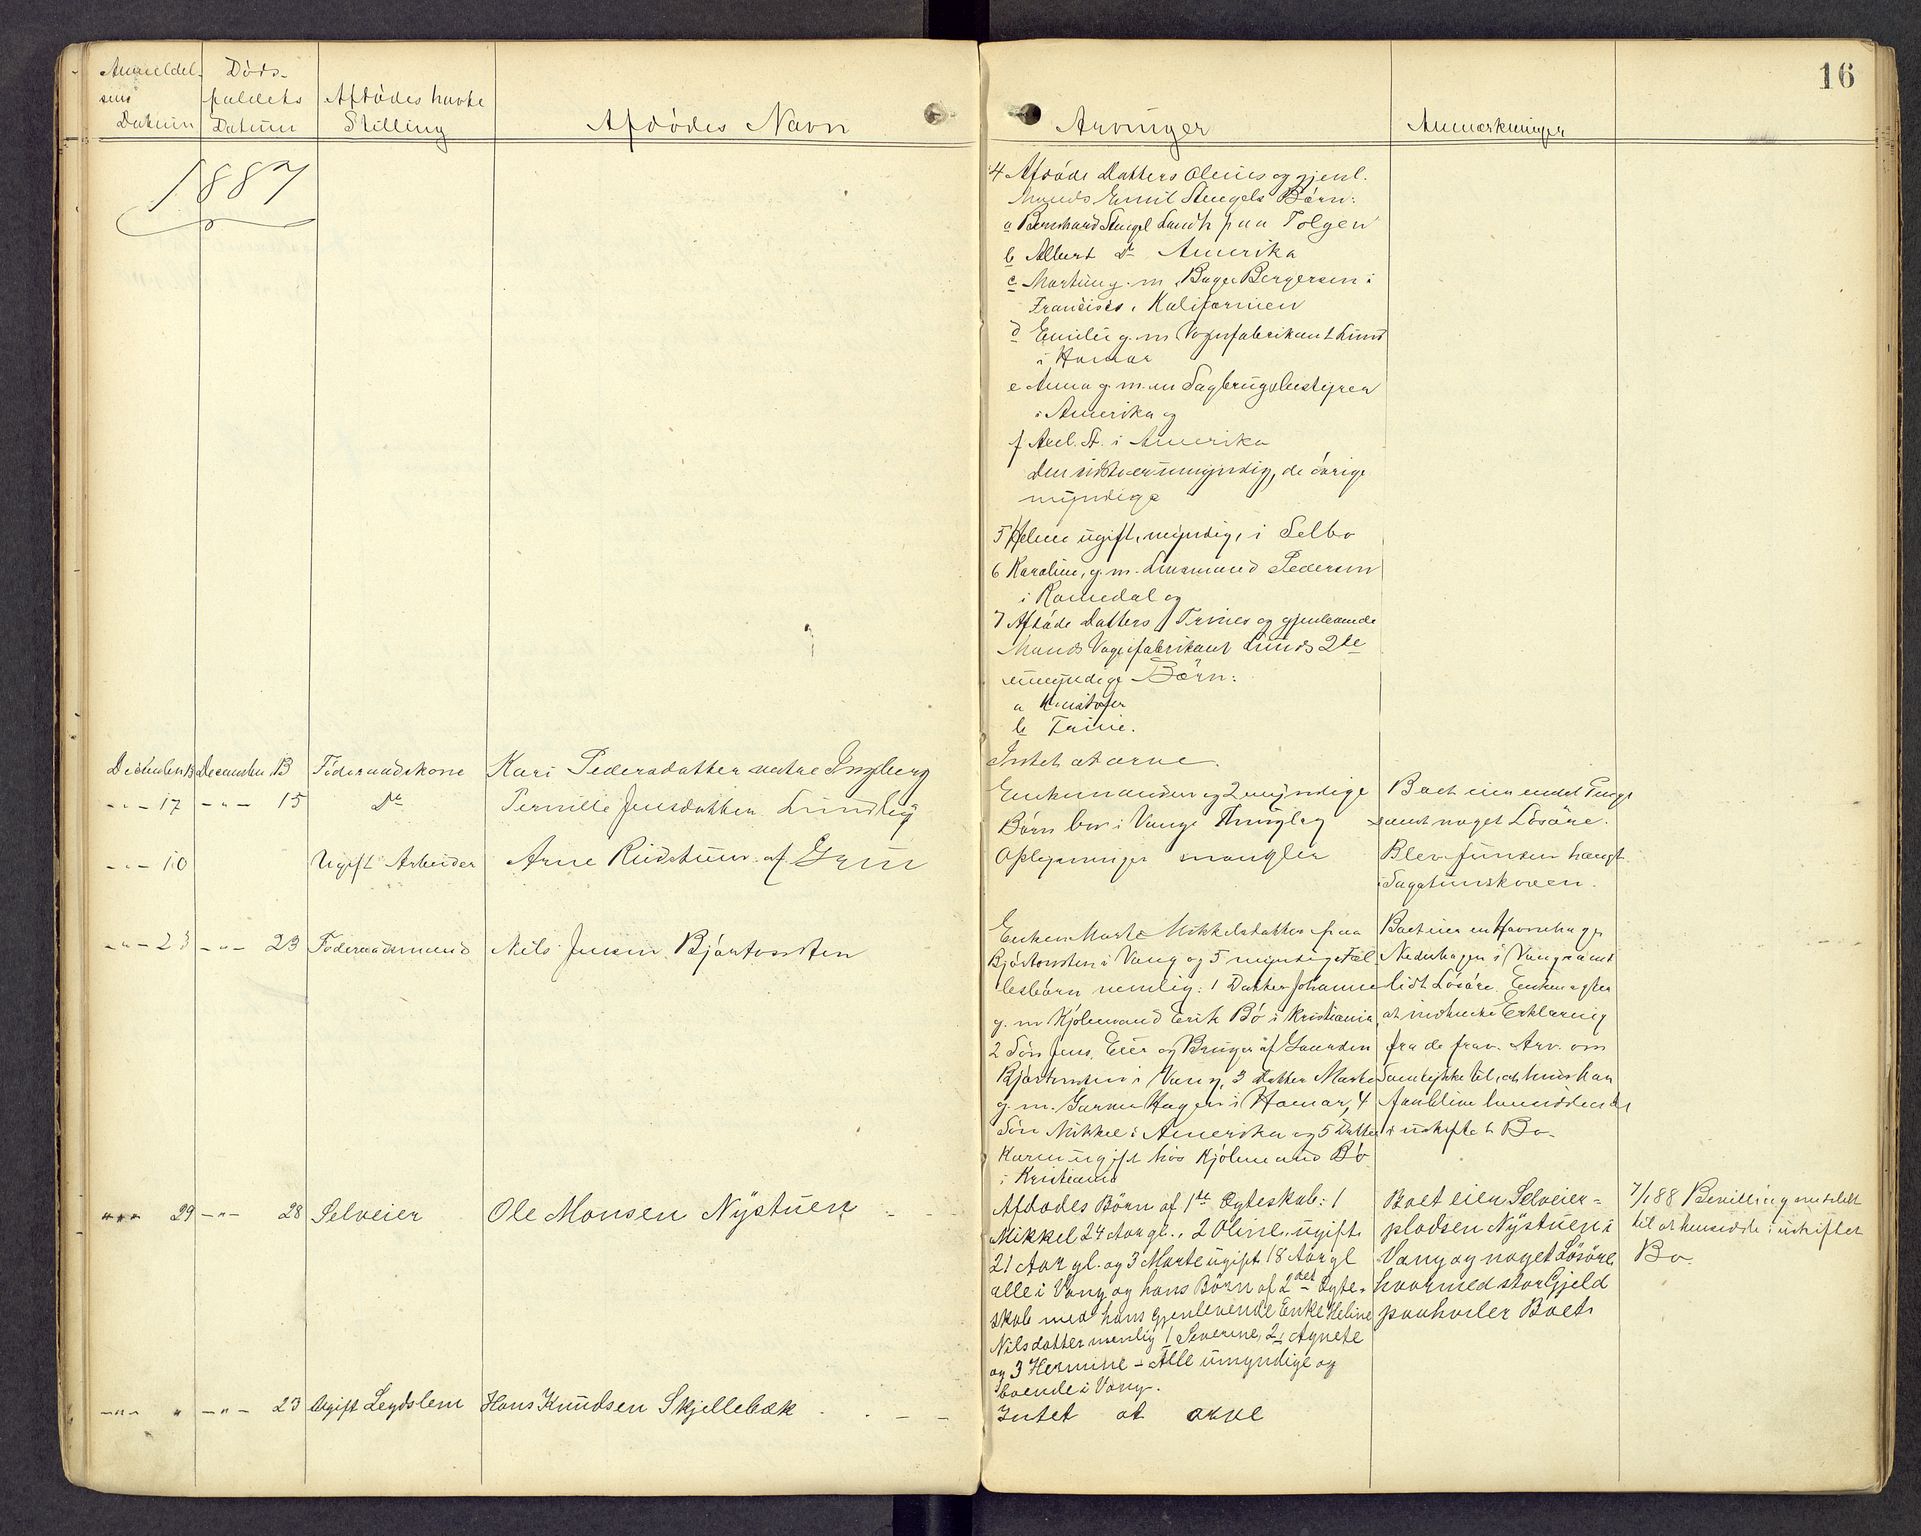 Anmeldel-
sens
Datum
Døds-
faldets
Datum
Afdødes havte
Stilling
Afdødes Navn
Arvinger
Anmærkninger
16
1887
4 Afdøde Datters Olines og gjenl.
Mands Emil Stengels Børn:
a Bernhard Stengel Landh paa Tolgen
b Albert Do Amerika
c Martin g. m. Bager Bergersen i
Francisco, Kalifornien
d Emilie g. m. Vognfabrikant Lund
i Hamar
e Anna g. m. en Sagbrugsbestyrer
i Amerika og
f Axel St. i Amerika
Den sidste er umyndig, de øvrige
myndige
5 Helene ugift, myndig, i Selbo
6 Karoline, g. m. Lensmand Pedersen
i Romedal og
7 Afdøde Datters Trines og gjenlevende
Mands Vognfabrikant Lunds 2de
umyndige Børn:
a Kristofer
b Trine.
December 13 December 13 Føderaadskone Kari Pedersdatter nedre Ingberg Intet at arve.
-"- 17 -"- 15 Do Pernille Jensdatter Lundby Enkemanden og 2 myndige Boet eier endel Penge
Børn bor i Vangs Thinglag samt noget Løsøre.
-"- 10 Ugift Arbeider Arne Rudstuen af Grue Oplysninger mangler Blev funden hængt
i Sagatunskoven.
-"- 23 -"- 23 Føderaadsmand Nils Jensen Bjørtomsten Enken Marte Mikkelsdatter fra Boet eier en Havnehage
Bjørtomsten i Vang og 5 myndige Fæl- Nederhagen i Vang samt
lesbørn nemlig: 1 Datter Johanne lidt Løsøre. Enken agter
g. m. Kjølmand Erik Bø i Kristiania, at indhente Erklæring
2 Søn Jens, Eier og Bruger af Gaarden fra de frav. Arv. om
Bjørtomsten i Vang, 3 Datter Marte Samtykke til, at hun kan
g. m. Garver Hagen i Hamar, 4 forblive hensiddende
Søn Mikkel i Amerika og 5 Datter i uskiftet Bo.
Karen ugift hos Kjølmand Bø
i Kristiania
-"- 29 -"- 28 Selveier Ole Monsen Nÿstuen Afdødes Børn af 1ste Ægteskab: 1 Boet eier Selveier= 7/1 88 Bevilling meddelt
Mikkel 24 Aar gl., 2 Oline, ugift pladsen Nÿstuen i til at hensidde i uskiftet
21 Aar gl. og 3 Marte ugift 18 Aar gl Vang og noget Løsøre, Bo.
alle i Vang og hans Børn af 2det Ægte- hvormed stor Gjeld
skab med hans gjenlevende Enke Heline paahviler Boet.
Nilsdatter nemlig 1 Severine, 2, Agnete
og 3 Hermine - Alle umyndige og
boende i Vang.
-"- " -"- 23 Ugift Legdslem Hans Knudsen Skjellebæk Intet at arve